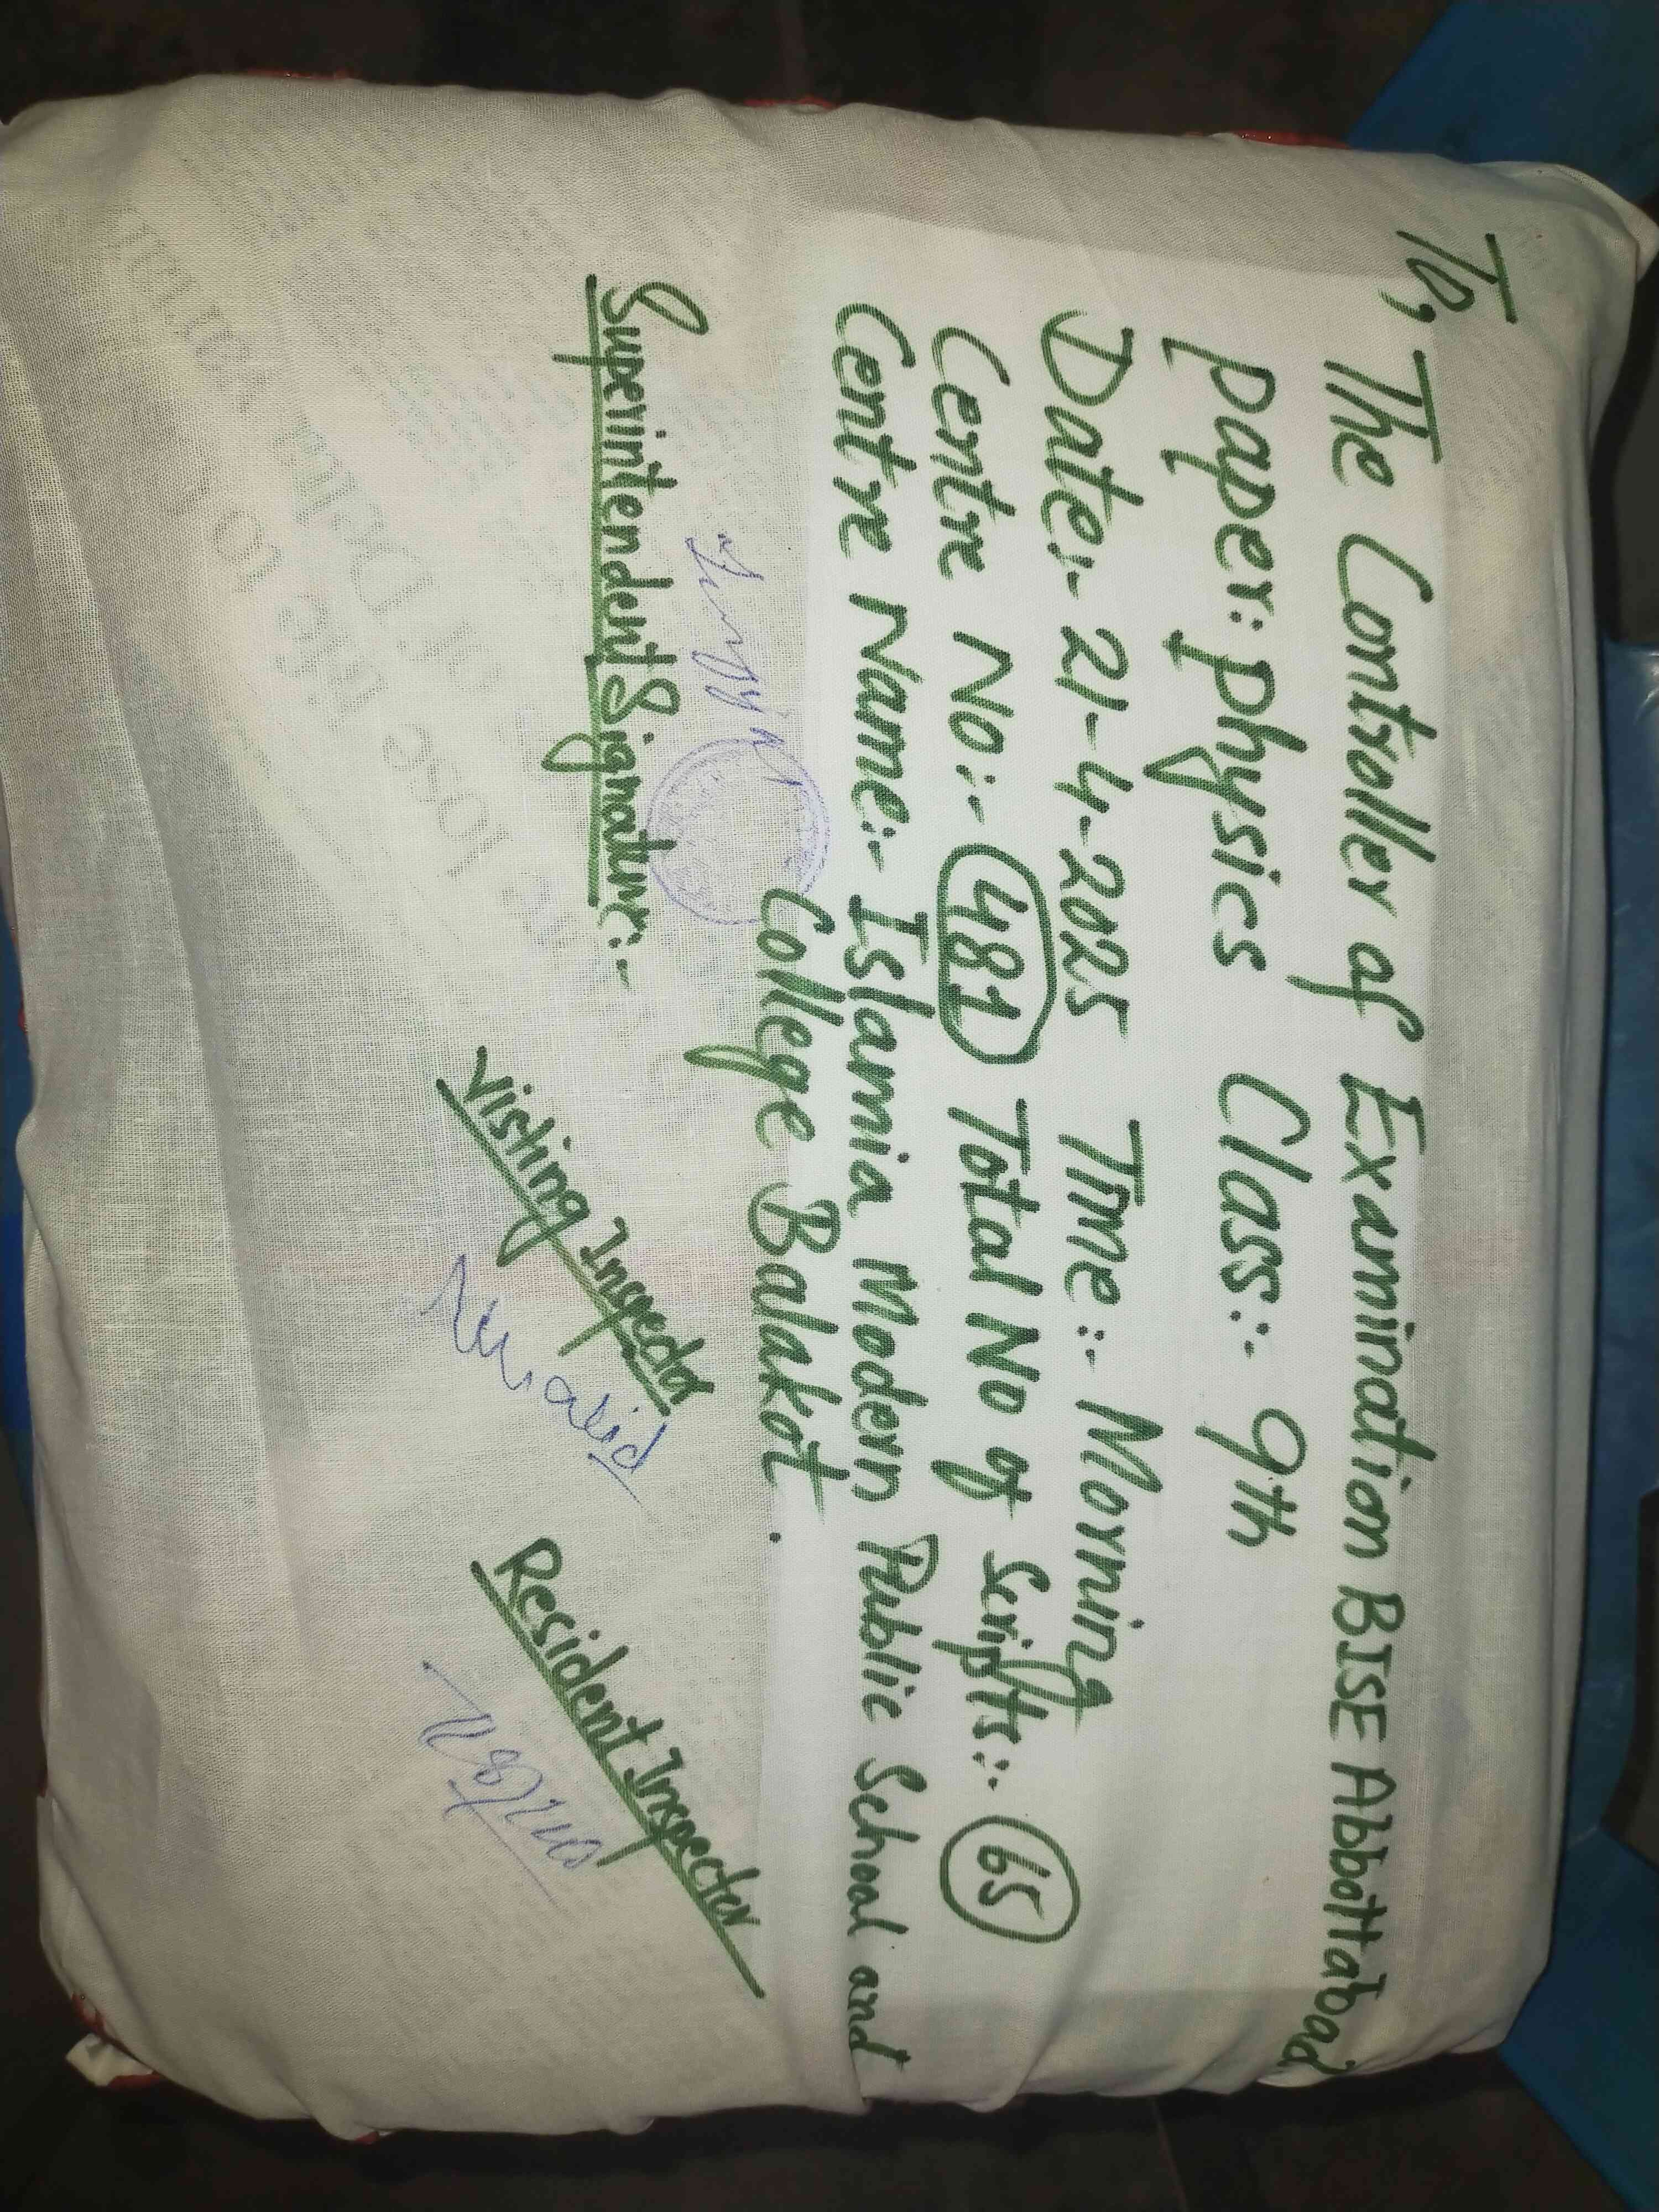 To, The Contsoller of Examination BISE Abbottabad
paper:: physics Class:- 9th
Date:- 21-4-2025 Time:- Morning
Centre No:- 481 Total No of Scripts:- 65
Centre Name:- Islamia Modern Public School and
College Balakot.
Superintendent Signature:-
Visting Inspector
Resident Inspector